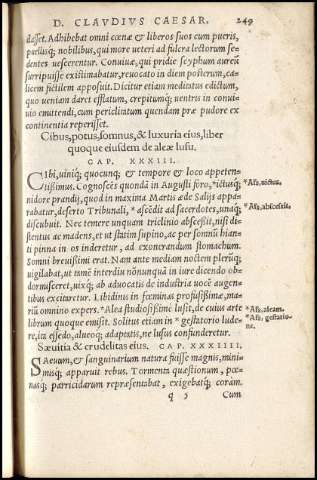 D. CLAVDIVS CAESAR. 249
dasset. Adhibebat omni cœnæ & liberos suos cum pueris,
puellisq; nobilibus, qui more veteri ad fulcra lectorum se-
dentes vescerentur. Conuiuæ, qui pridie scyphum aureũ
surripuisse existimabatur, reuocato in diem posterum, ca-
licem fictilem apposuit. Dicitur etiam meditatus edictum,
quo veniam daret efflatum, crepitumq; ventris in conui-
uio emittendi, cum periclitatum quendam præ pudore ex
continentia reperisset.
Cibus, potus, somnus, & luxuria eius, liber
quoque eiusdem de aleæ lusu.
CAP. XXXIII.
CIbi, uiniq; quocunq; & tempore & loco appeten-
tißimus. Cognoscẽs quondã in Augusti foro, *ictusq;
nidore prandij, quod in maxima Martis æde Salijs appa-
rabatur, deserto Tribunali, *ascẽdit ad sacerdotes, unaq;
discubuit. Nec temere unquam triclinio abscessit, nisi di-
stentus ac madens, et ut statim supino, ac per somnũ hian-
ti pinna in os inderetur, ad exonerandum stomachum.
Somni breuissimi erat. Nam ante mediam noctem plerũq;
uigilabat, ut tamẽ interdiu nõnunquã in iure dicendo ob-
dormisceret, uixq; ab aduocatis de industria uocẽ augen-
tibus excitaretur. Libidinis in fœminas profusißimæ, ma-
rium omnino expers. *Alea studiosißime lusit, de cuius arte
librum quoque emisit. Solitus etiam in *gestatorio lude-
re, ita essedo, alueoq; adaptatis, ne lusus confunderetur.
Sæuitia & crudelitas eius. CAP. XXXIIII.
SAeuum, & sanguinarium natura fuisse magnis, mini-
misq; apparuit rebus. Tormenta quæstionum, pœ-
nasq; parricidarum repræsentabat, exigebatq; coram.
q 5 Cum
*Als, victus.
*Als, abscessit.
*Als, aleam.
*Als, gestatio-
ne.